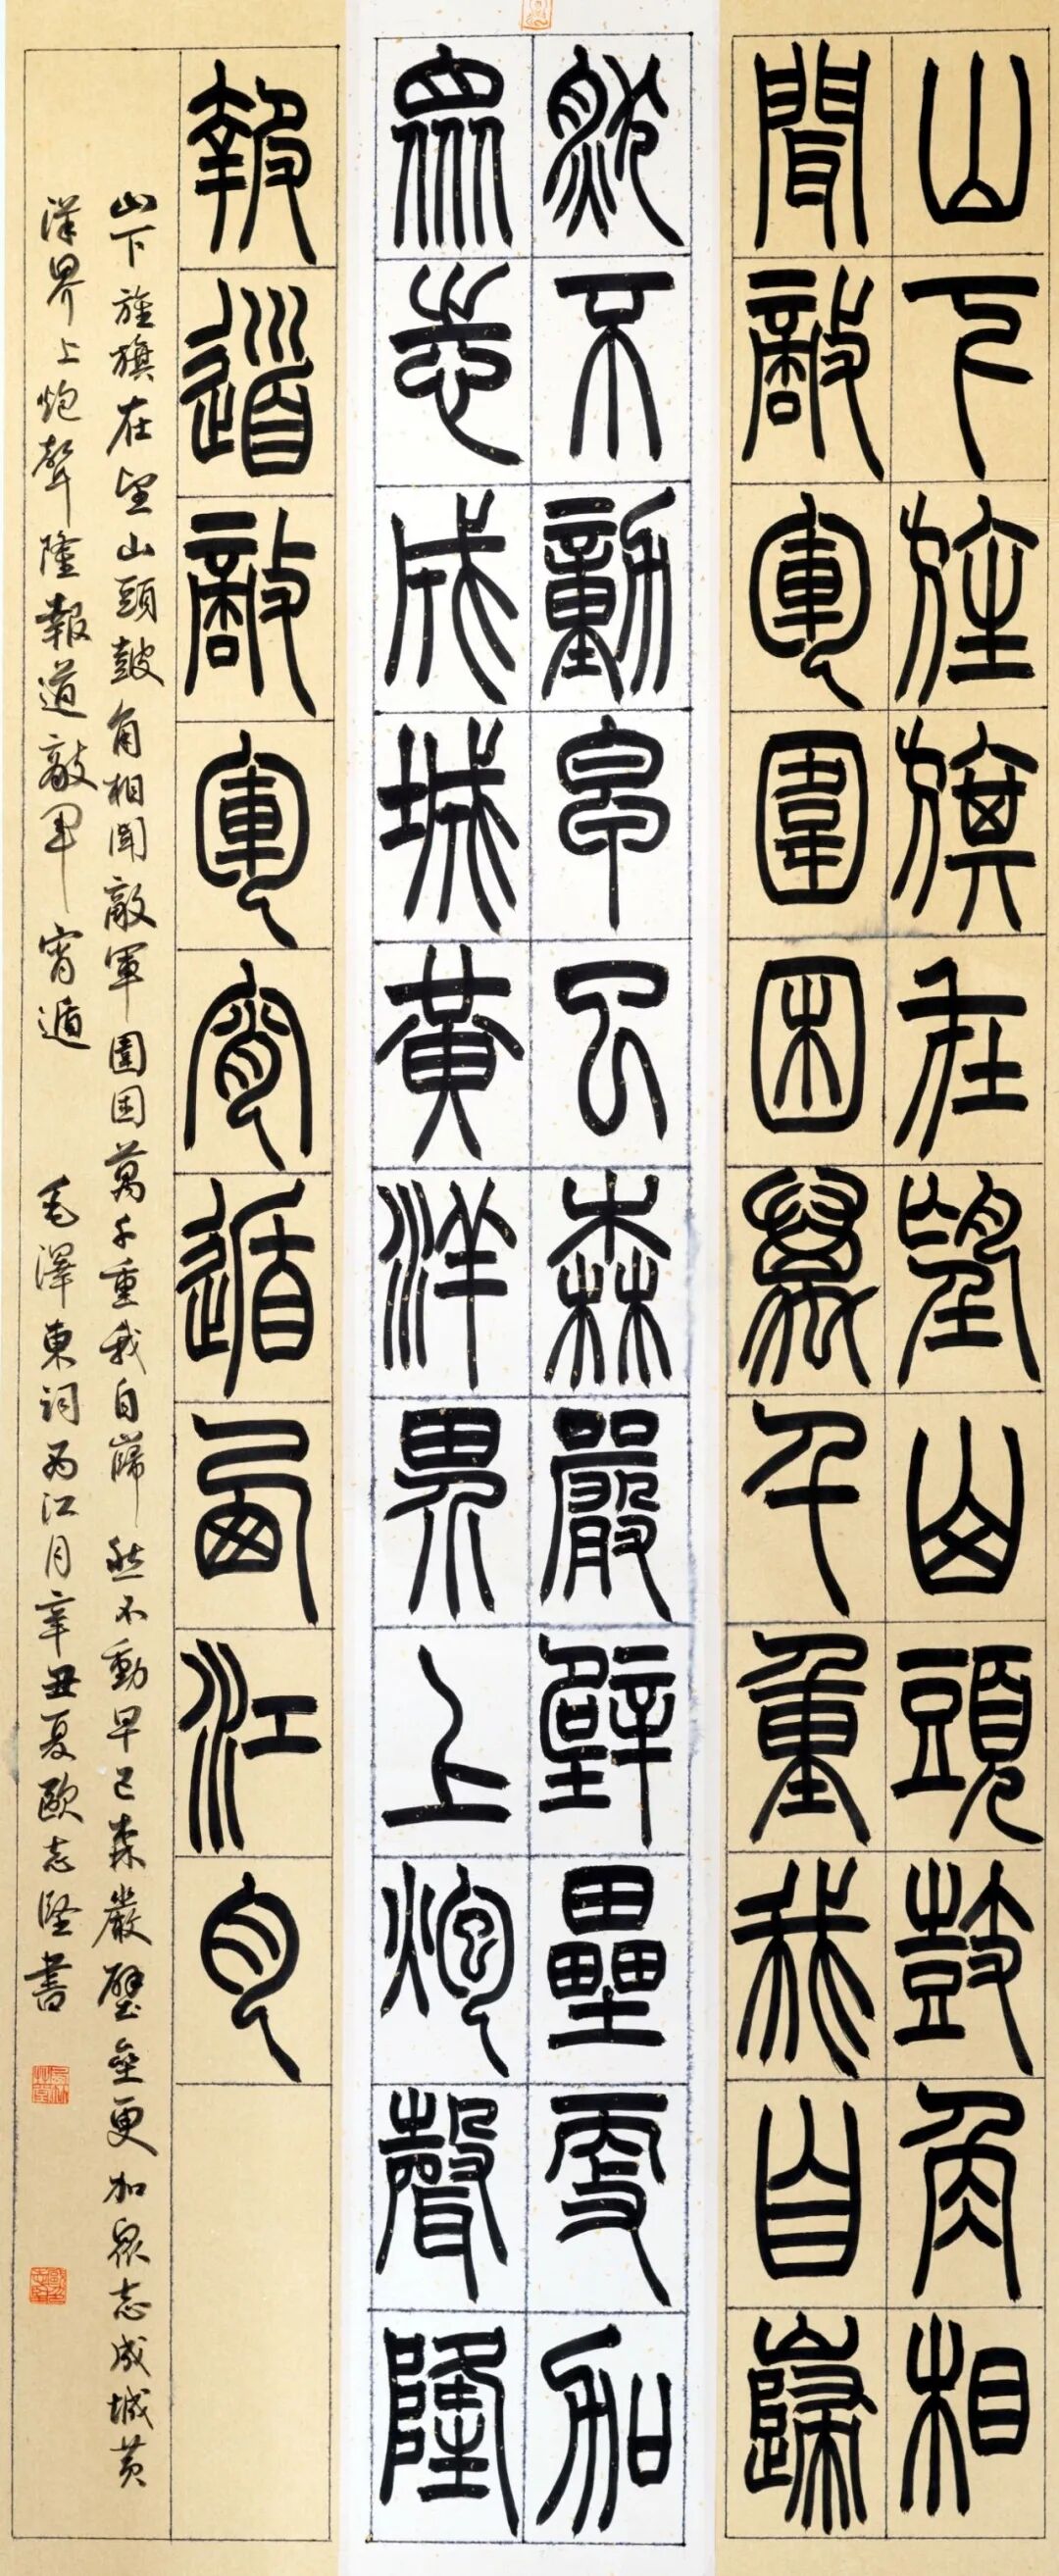 山下旌旗在望山頭鼓角相
聞敵軍圍困萬千重我自巋
然不動早已森嚴壁壘更加
眾志成城黃洋界上炮聲隆
報道敵軍宵遁西江月
山下旌旗在望山頭鼓角相聞敵軍圍困萬千重我自巋然不動早已森嚴壁壘更加眾志成城黄
洋界上炮聲隆報道敵軍宵遁 毛澤東詞西江月辛丑夏歐志堅書